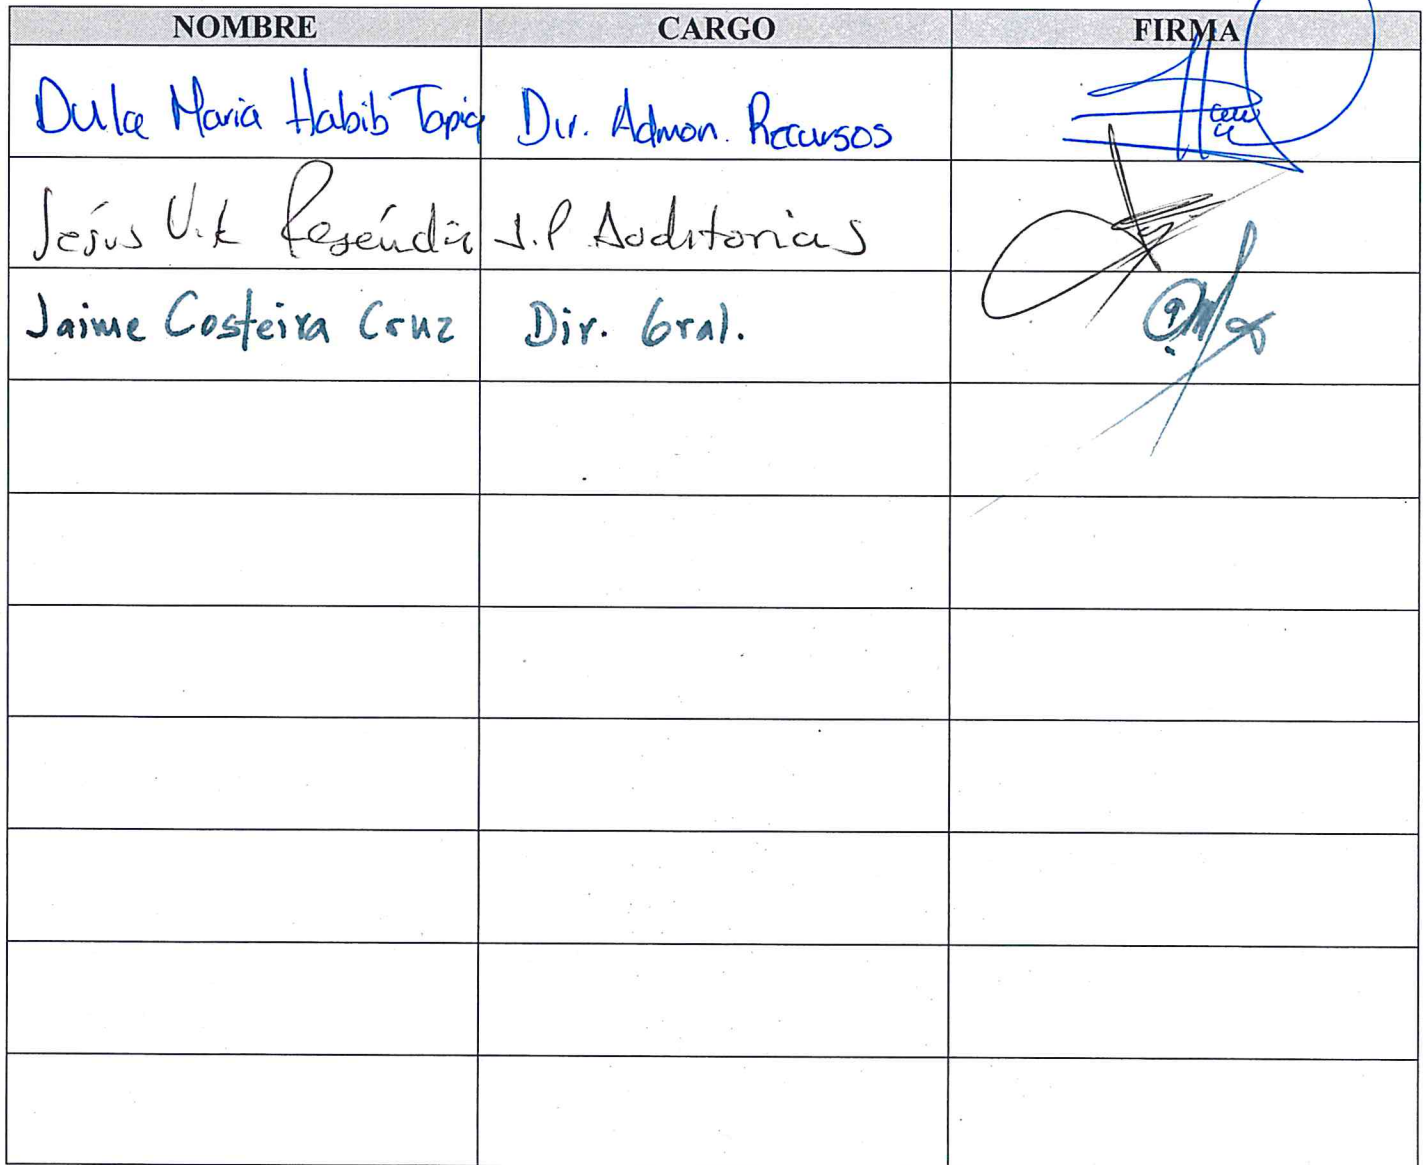 NOMBRE CARGO FIRMA
Dulce Maria Habib Tapia Dir. Admon. Recursos
Jesús Reséndiz J.P Auditorias
Jaime Costeira Cruz Dir. Gral.